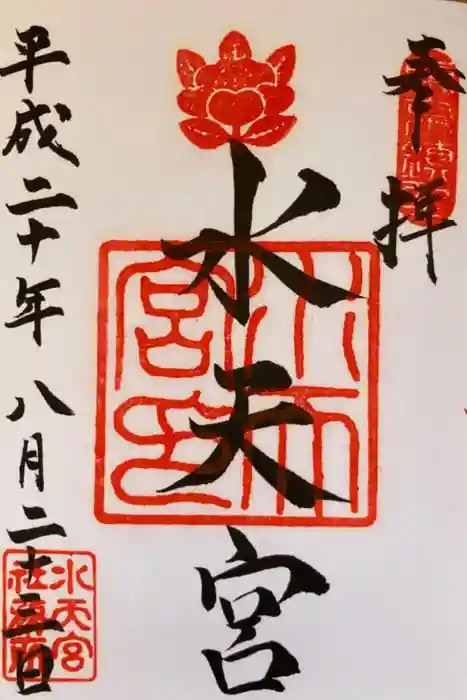 奉拝
水天宮
平成二十年八月二十三日
水天宮
社務所
水天
宮印